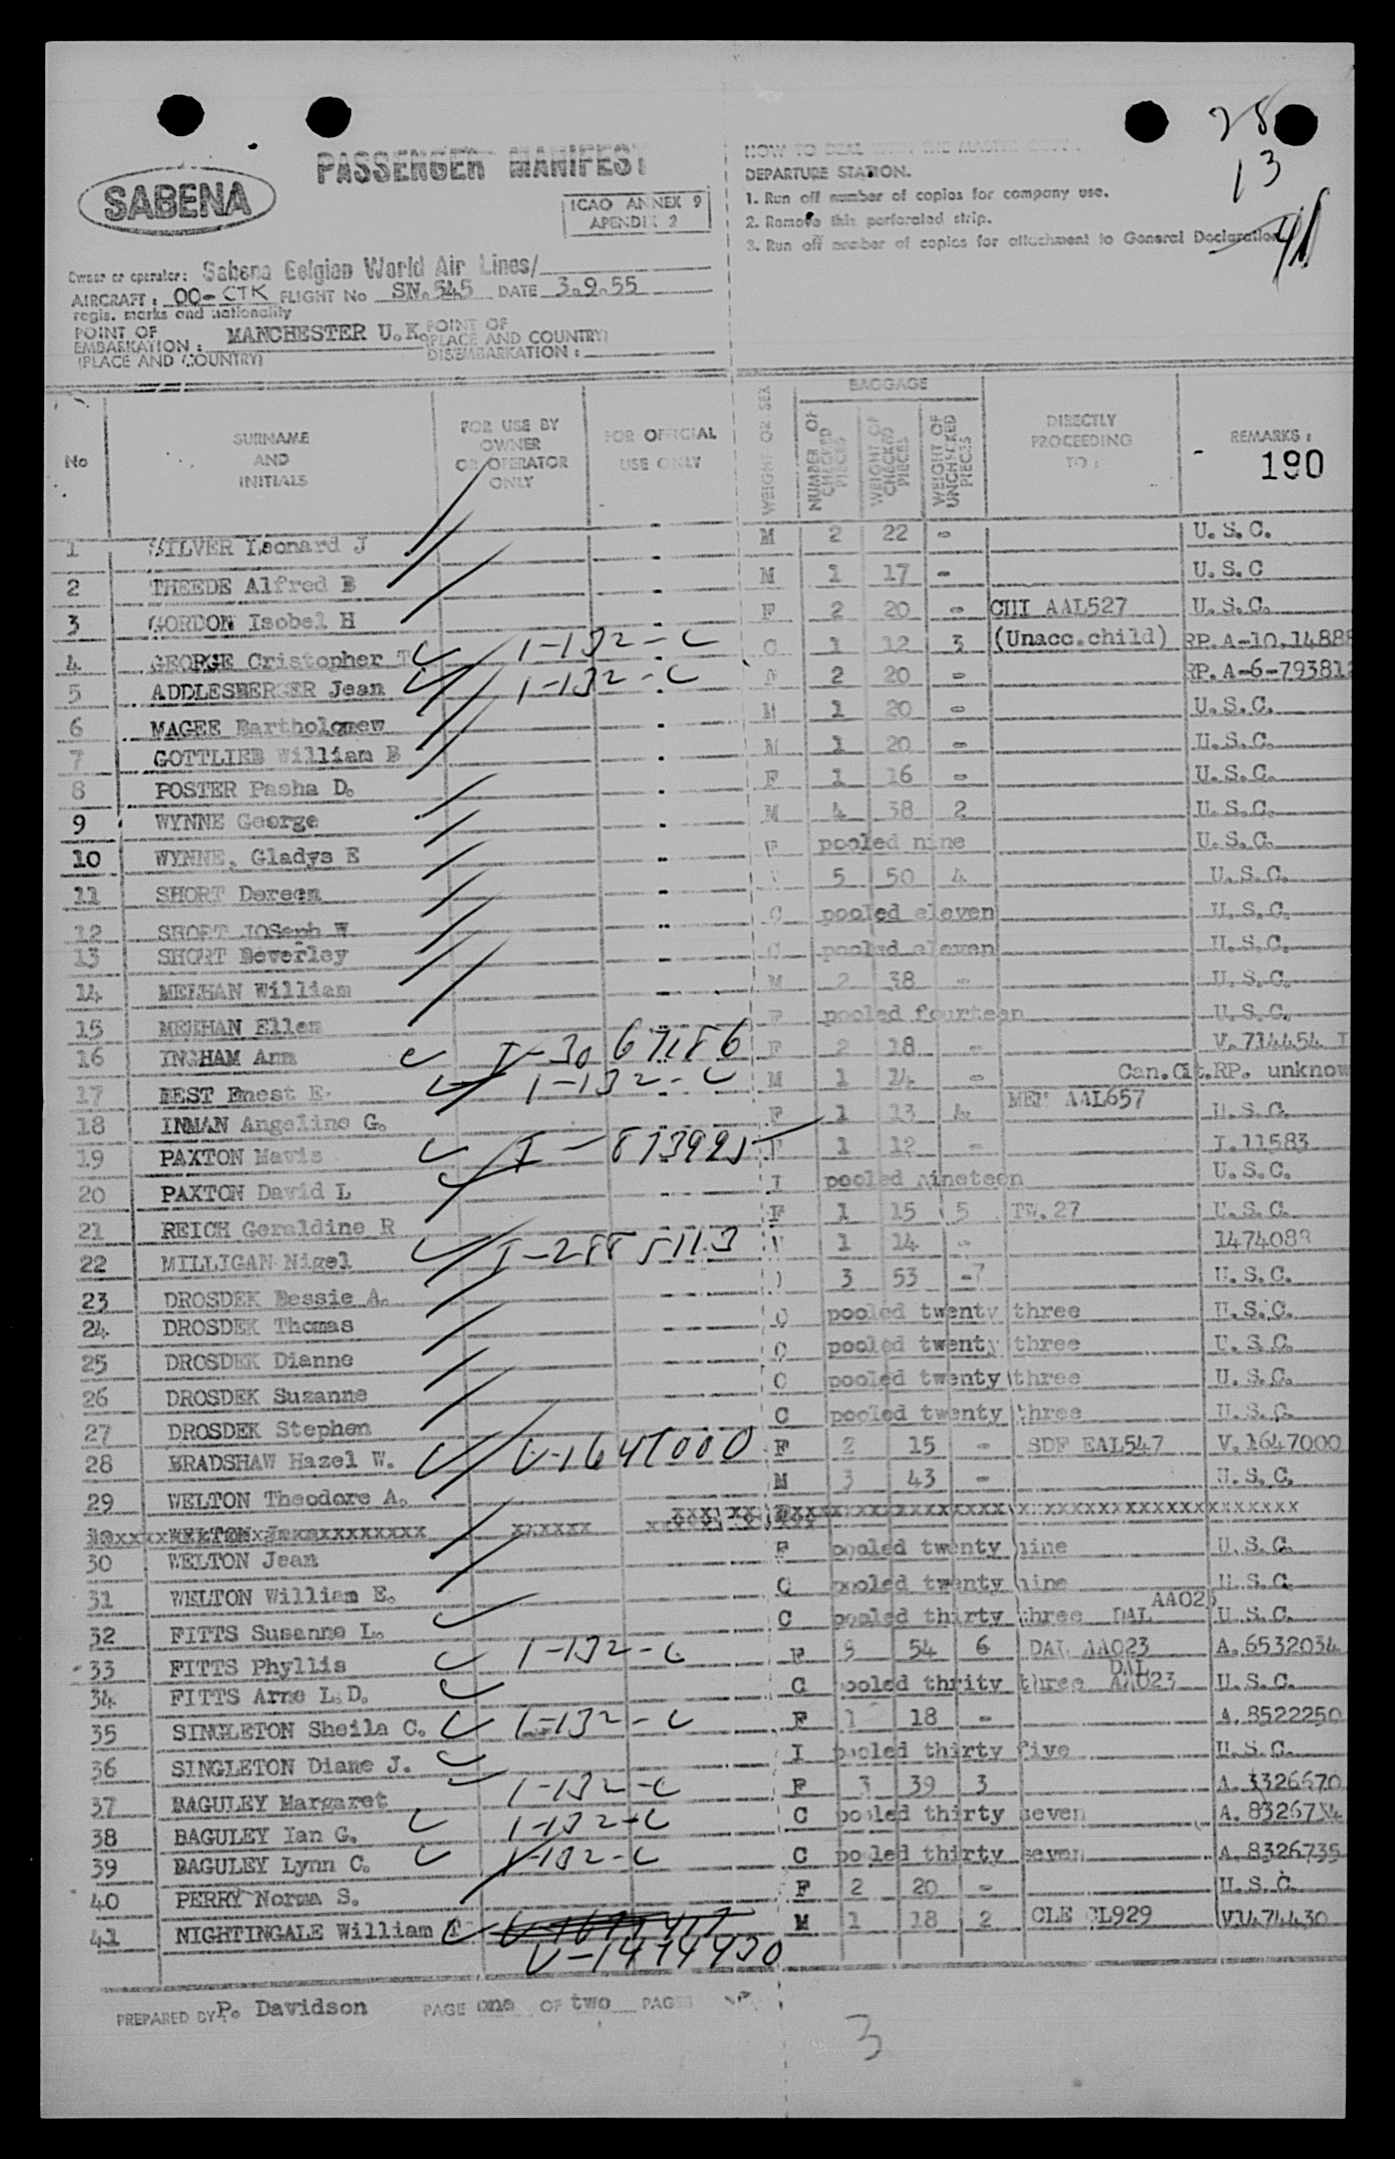 28
13
41
SABENA
PASSENGER MANIFEST
ICAO ANNEX 9
APENDIX 2
DEPARTURE STATION.
1. Run off number of copies for company use.
2. Remove this perforated strip.
3. Run off number of copies for attachment to General Declaration
Owner or operator: Sabena Belgian World Air Lines/
AIRCRAFT: OO-CTK FLIGHT No SN.545 DATE 3.9.55
regis. marks and nationality
POINT OF EMBARKATION: MANCHESTER U.K. POINT OF DISEMBARKATION:
(PLACE AND COUNTRY) (PLACE AND COUNTRY)
No SURNAME AND INITIALS FOR USE BY OWNER OR OPERATOR ONLY FOR OFFICIAL USE ONLY WEIGHT OR SEX BAGGAGE NUMBER OF CHECKED PIECES WEIGHT OF CHECKED PIECES WEIGHT OF UNCHECKED PIECES DIRECTLY PROCEEDING TO: REMARKS:
190
1 SILVER Leonard J M 2 22 - U.S.C.
2 THEEDE Alfred B M 1 17 - U.S.C
3 GORDON Isobel H F 2 20 - CHI AAL527 U.S.C.
4 GEORGE Cristopher T 1-132-C C 1 12 3 (Unacc.child) RP.A-10.14888
5 ADDLESBERGER Jean 1-132-C 2 20 - RP.A-6-793812
6 MAGEE Bartholomew M 1 20 - U.S.C.
7 GOTTLIEB William B M 1 20 - U.S.C.
8 POSTER Pasha D. F 1 16 - U.S.C.
9 WYNNE George M 4 38 2 U.S.C.
10 WYNNE, Gladys E F pooled nine U.S.C.
11 SHORT Doreen 5 50 4 U.S.C.
12 SHORT JOSeph W C pooled eleven U.S.C.
13 SHORT Beverley C pooled eleven U.S.C.
14 MEEHAN William M 2 38 - U.S.C.
15 MEEHAN Ellen F pooled fourteen U.S.C.
16 INGHAM Ann I-3067186 F 2 18 - V.714454 I
17 BEST Ernest E. 1-132-C M 1 14 - Can.Cit.RP. unknow
18 INMAN Angeline G. F 1 13 4 AAL657 U.S.C.
19 PAXTON Mavis I-873995 F 1 12 - I.11583
20 PAXTON David L I pooled nineteen U.S.C.
21 REICH Geraldine R F 1 15 5 TW.27 U.S.C.
22 MILLIGAN Nigel I-2885113 1 14 - 1474088
23 DROSDEK Bessie A. 3 53 -7 U.S.C.
24 DROSDEK Thomas C pooled twenty three U.S.C.
25 DROSDEK Dianne C pooled twenty three U.S.C.
26 DROSDEK Suzanne C pooled twenty three U.S.C.
27 DROSDEK Stephen C pooled twenty three U.S.C.
28 BRADSHAW Hazel W. V-1647000 F 2 15 - SDF EAL547 V.1647000
29 WELTON Theodore A. M 3 43 - U.S.C.
30 WELTON Jean F pooled twenty nine U.S.C.
31 WELTON William E. C pooled twenty nine U.S.C.
32 FITTS Susanne L. C pooled thirty three DAL AA023 U.S.C.
33 FITTS Phyllis 1-132-C F 3 54 6 DAL AA023 A.6532034
34 FITTS Arne L.D. C pooled thrity three DAL AA023 U.S.C.
35 SINGLETON Sheila C. 1-132-C F 1 18 - A.8522250
36 SINGLETON Diane J. I pooled thirty five U.S.C.
37 BAGULEY Margaret 1-132-C F 3 39 3 A.3326670
38 BAGULEY Ian G. 1-132-C C pooled thirty seven A.8326734
39 BAGULEY Lynn C. 1-132-C C pooled thirty seven A.8326735
40 PERRY Norma S. F 2 20 - U.S.C.
41 NIGHTINGALE William T V-1474430 M 1 18 2 CLE CL929 V1474430
PREPARED BY P. Davidson PAGE one OF two PAGES
3